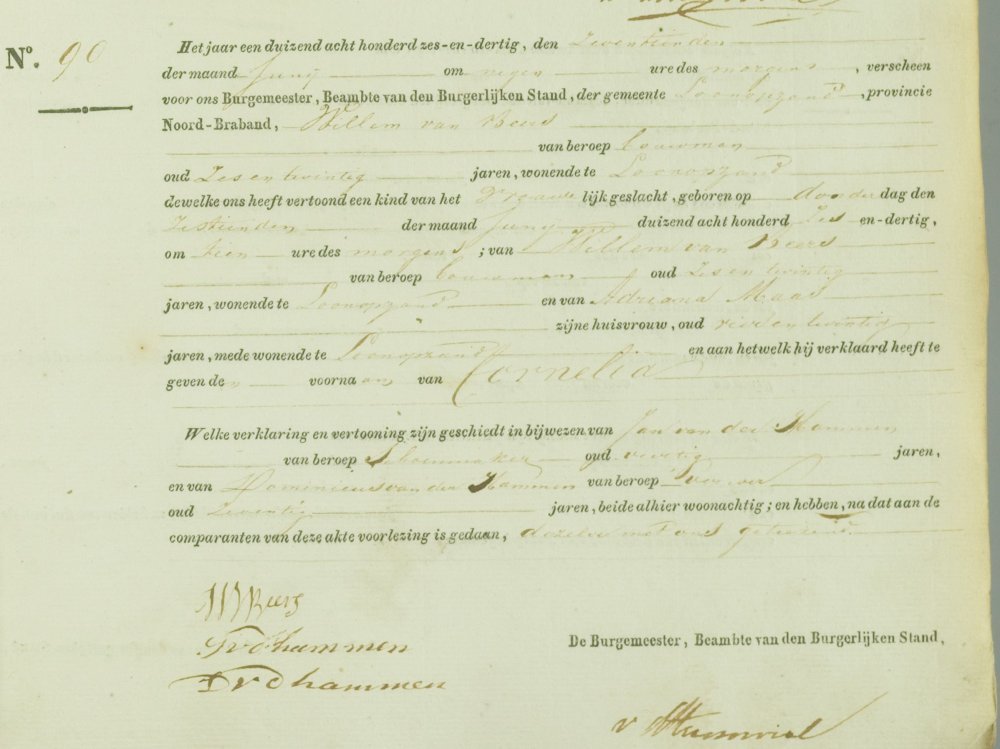 N.o 90
Het jaar een duizend acht honderd zes-en-dertig, den Zeventienden
der maand Junij om negen ure des morgens, verscheen
voor ons Burgemeester, Beambte van den Burgerlijken Stand, der gemeente Loonopzand, provincie
Noord-Braband, Willem van Beers
van beroep bouwman
oud Zes en twintig jaren, wonende te Loonopzand
dewelke ons heeft vertoond een kind van het Vrouwe lijk geslacht, geboren op donder dag den
Zestienden der maand Junij duizend acht honderd Zes en-dertig,
om tien ure des morgens; van Willem van Beers
van beroep bouwman oud Zes en twintig
jaren, wonende te Loonopzand en van Adriana Maas
zijne huisvrouw, oud vier en twintig
jaren, mede wonende te Loonopzand en aan hetwelk hij verklaard heeft te
geven den voornaam van Cornelia
Welke verklaring en vertooning zijn geschiedt in bijwezen van Jan van der Hammen
van beroep Schoenmaker oud veertig jaren,
en van Dominicus van der Hammen van beroep
oud Zeventig jaren, beide alhier woonachtig; en hebben, na dat aan de
comparanten van deze akte voorlezing is gedaan, dezelve met ons geteekend.
W V Beers
J v d hammen
D v d hammen
De Burgemeester, Beambte van den Burgerlijken Stand,